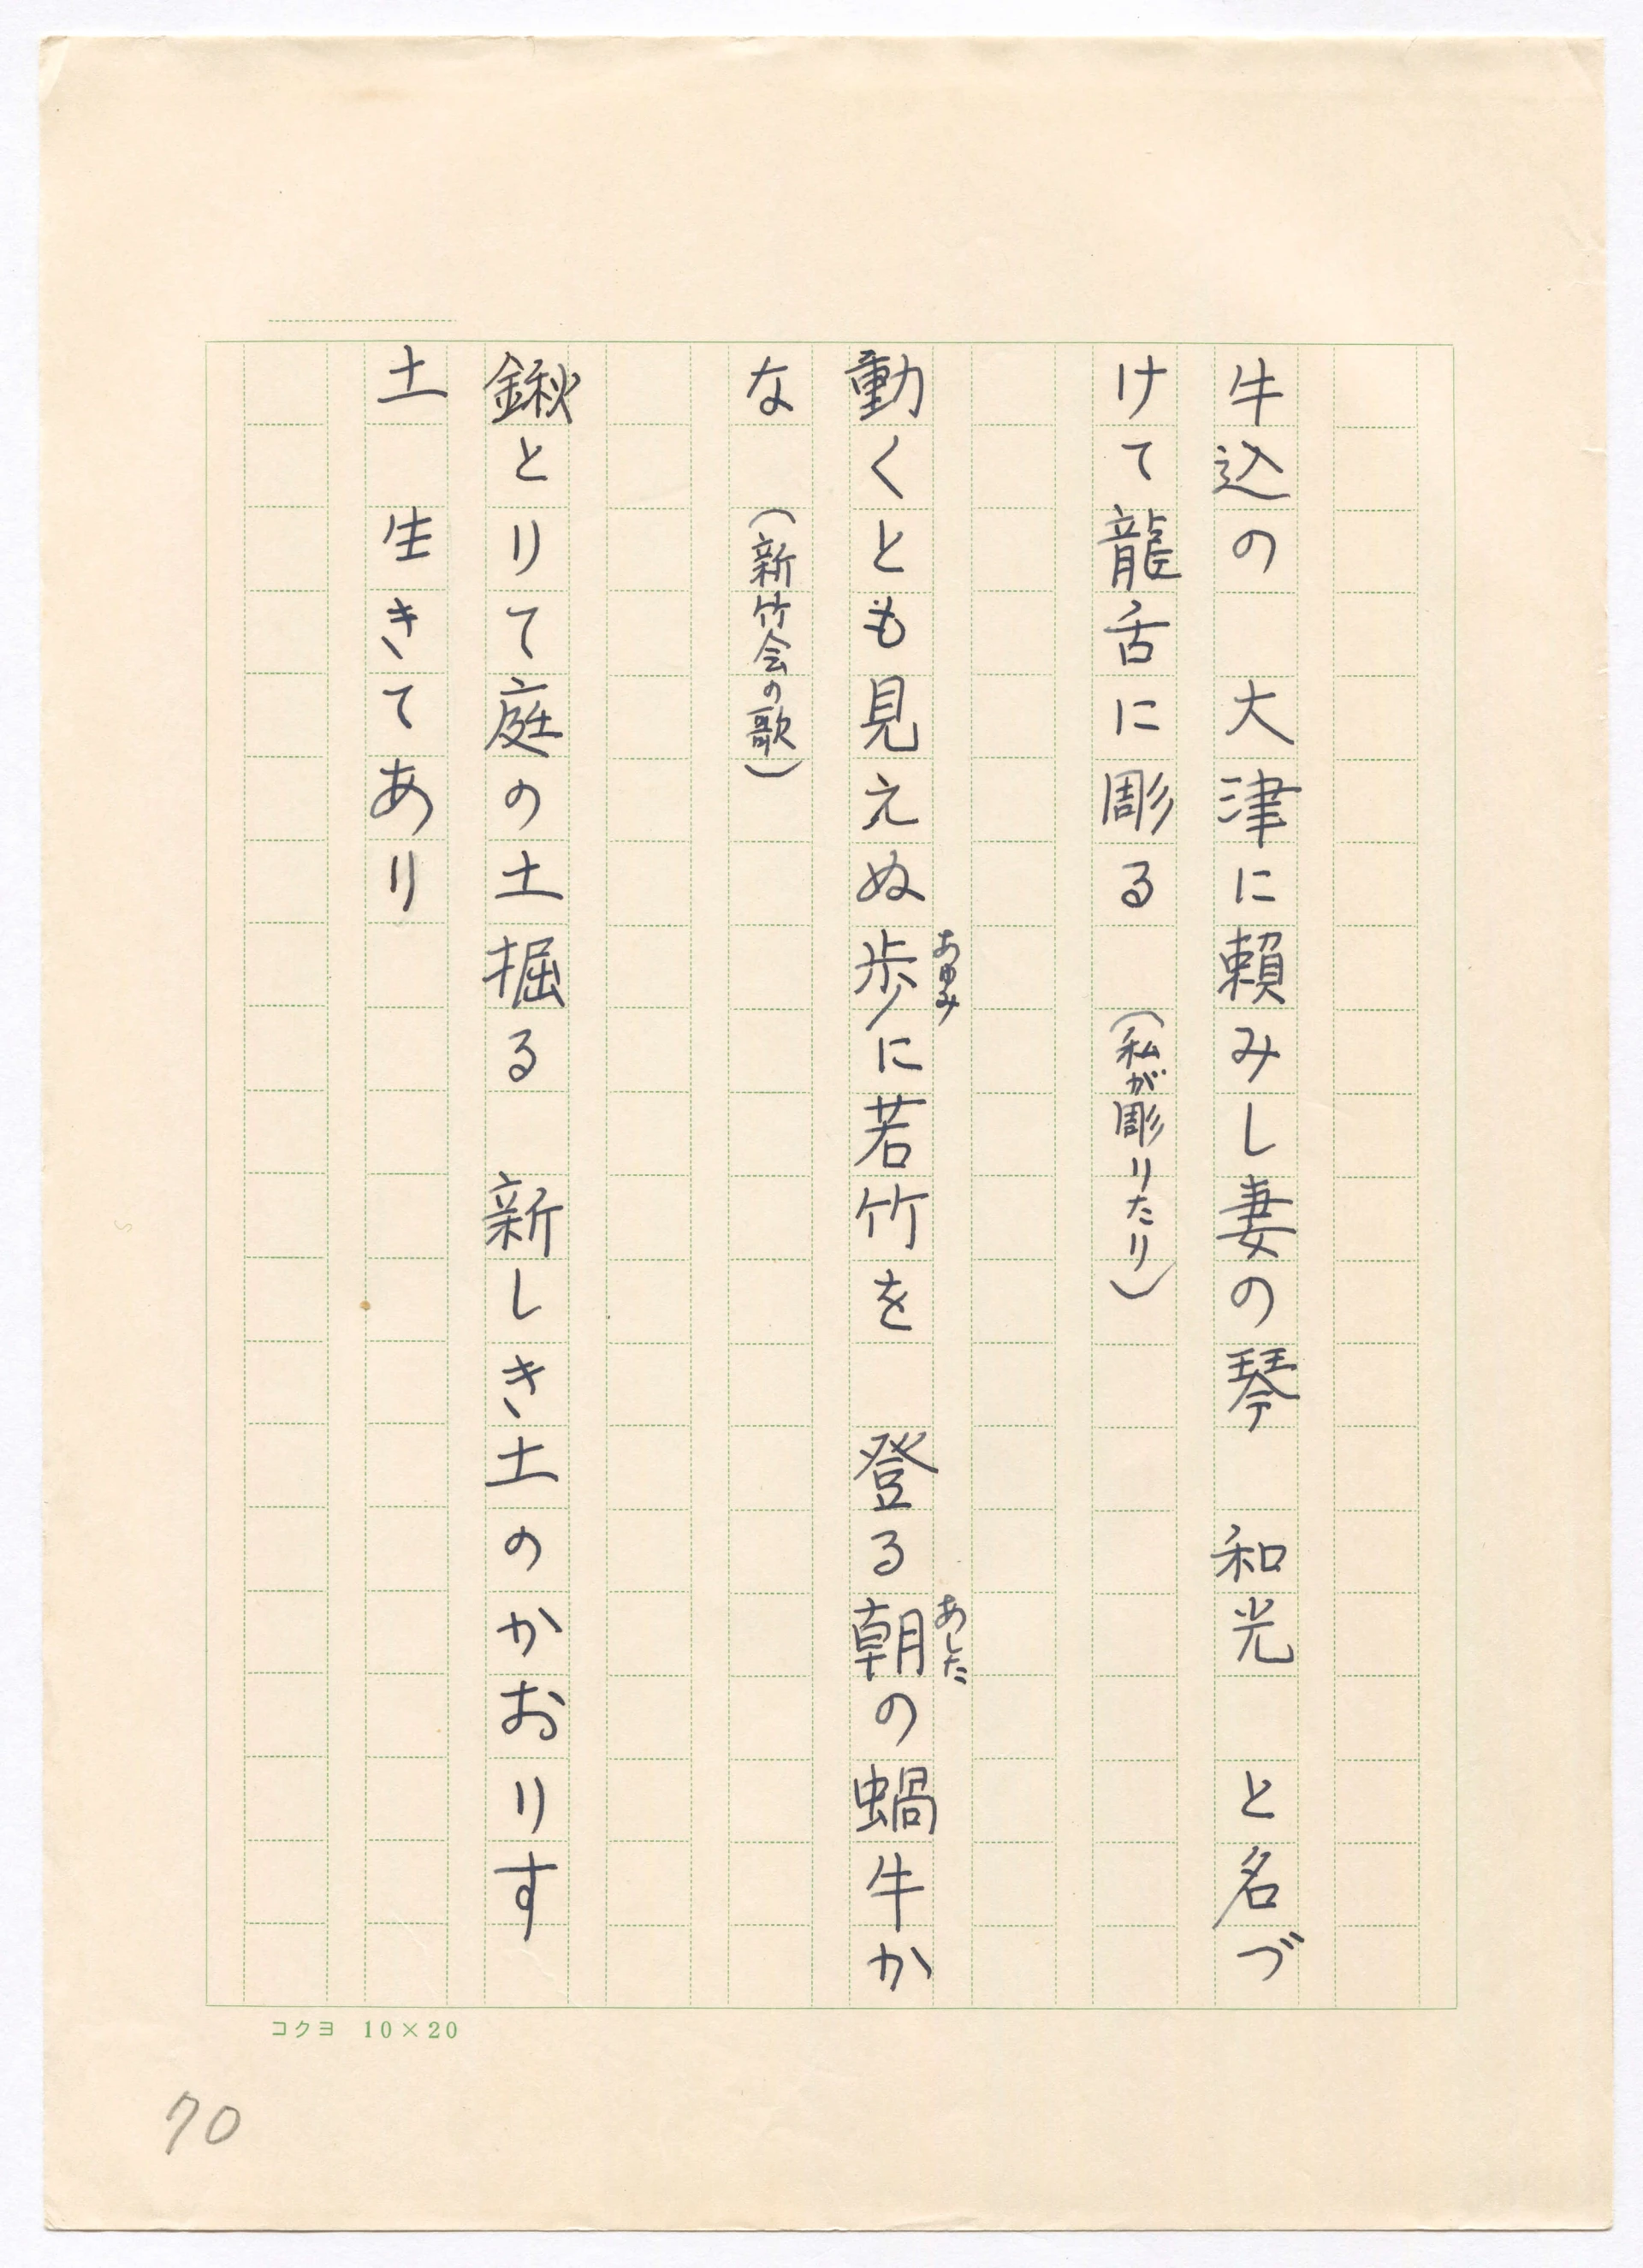 牛込の　大津に賴みし妻の琴　和光　と名づ
けて龍舌に彫る　（私が彫りたり）
動くとも見えぬ歩に若竹を　登る朝の蝸牛か
あゆみ
あした
な　（新竹会の歌）
鍬とりて庭の土掘る　新しき土のかおりす
土　生きてあり
コクヨ　10×20
70